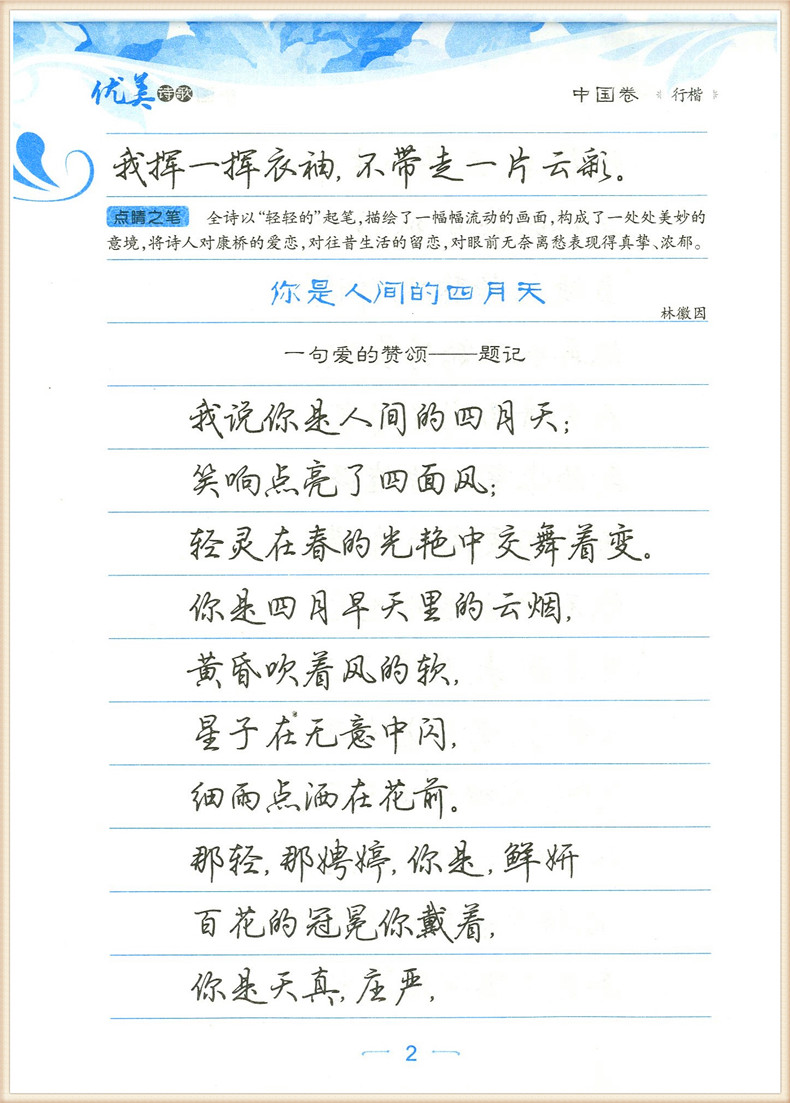 优美诗歌
中国卷 行楷
我挥一挥衣袖,不带走一片云彩。
点睛之笔 全诗以“轻轻的”起笔,描绘了一幅幅流动的画面,构成了一处处美妙的
意境,将诗人对康桥的爱恋,对往昔生活的留恋,对眼前无奈离愁表现得真挚、浓郁。
你是人间的四月天
林徽因
一句爱的赞颂——题记
我说你是人间的四月天;
笑响点亮了四面风;
轻灵在春的光艳中交舞着变。
你是四月早天里的云烟,
黄昏吹着风的软,
星子在无意中闪,
细雨点洒在花前。
那轻,那娉婷,你是,鲜妍
百花的冠冕你戴着,
你是天真,庄严,
2